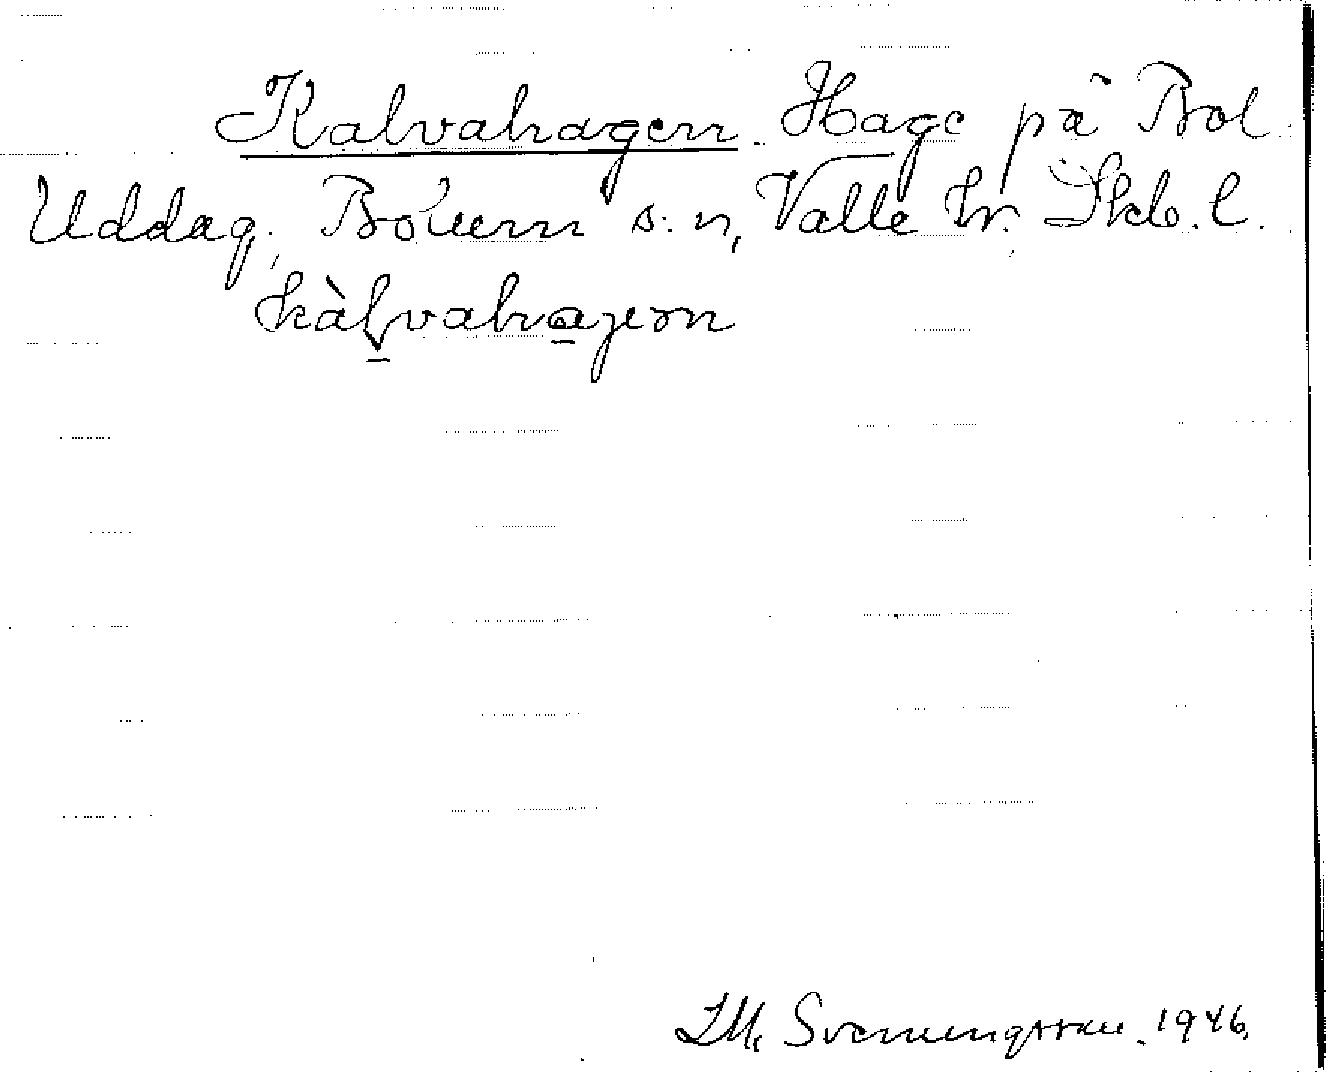 Kalvahagen. Hage på Bol
Uddag, Bolum s:n, Valle hr. Skb. l.
kàlvahagen
I.M. Svenungsson. 1946.